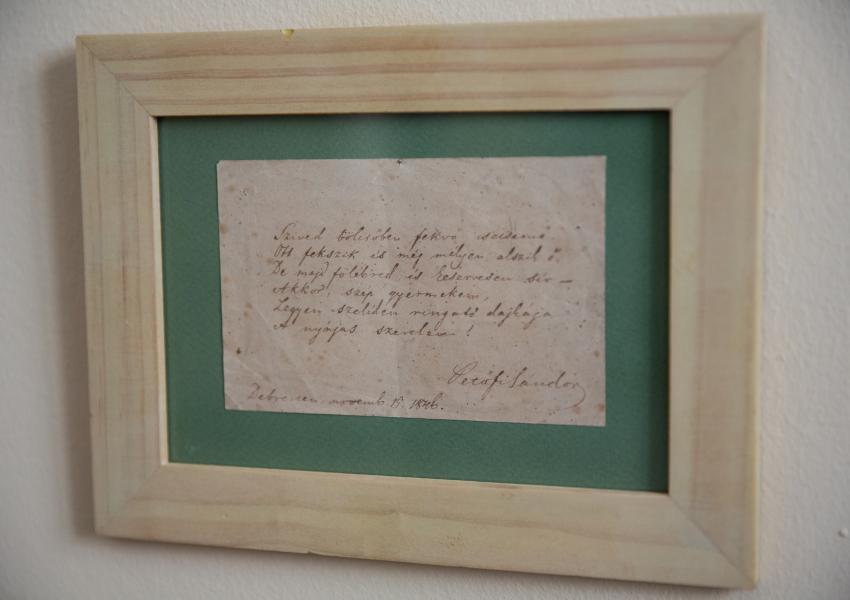 Szived bölcsőben fekvő csecsemő
Ott fekszik is még mélyen alszik ő.
De majd fölébred és keservesen sir —
Akkor, szép gyermekem,
Legyen szeliden ringató dajkája
A nyájas szerelem!
Petőfi Sándor
Debreczen novemb. 1846.